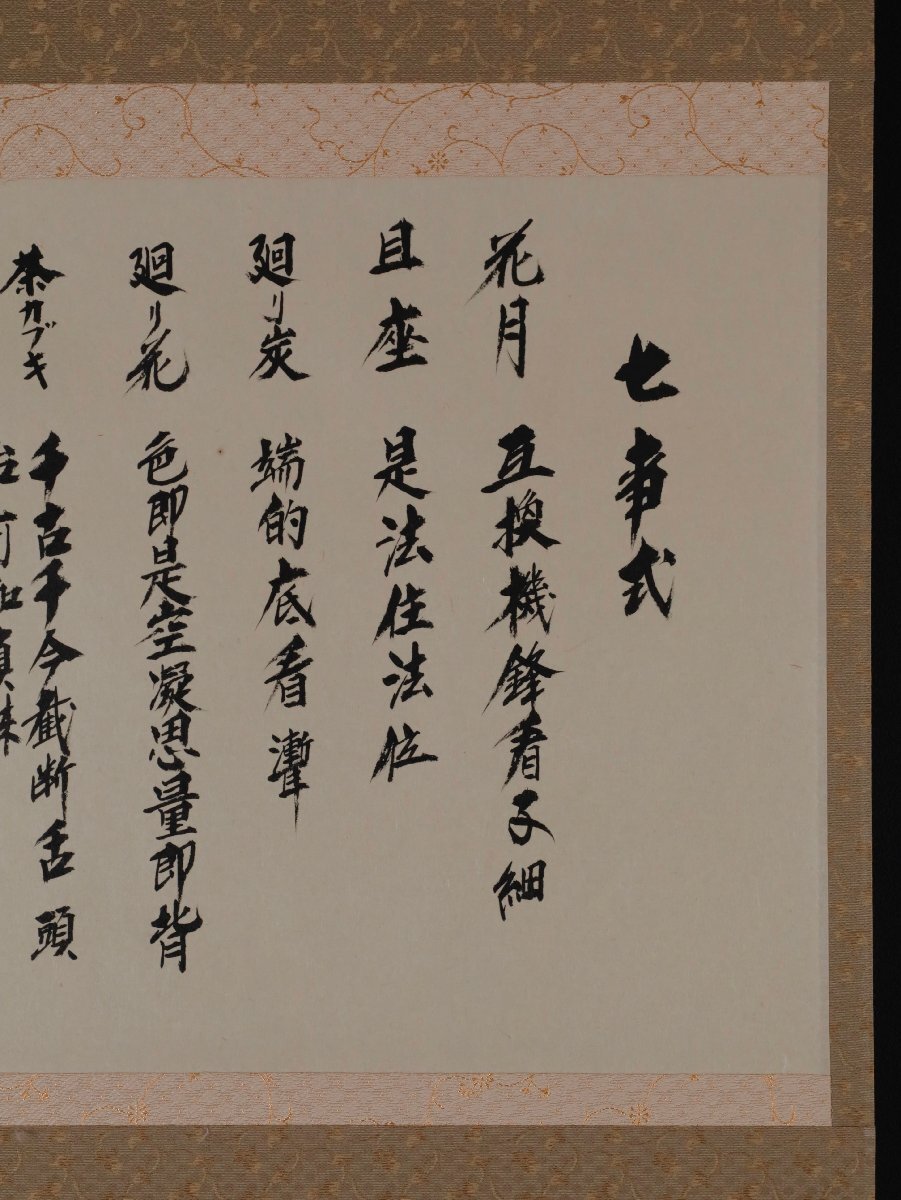 七事式
花月 互換機鋒看子細
且座 是法住法位
廻リ炭 端的底看聻
廻リ花 色即是空凝思量即背
茶カブキ 千古千今截断舌頭